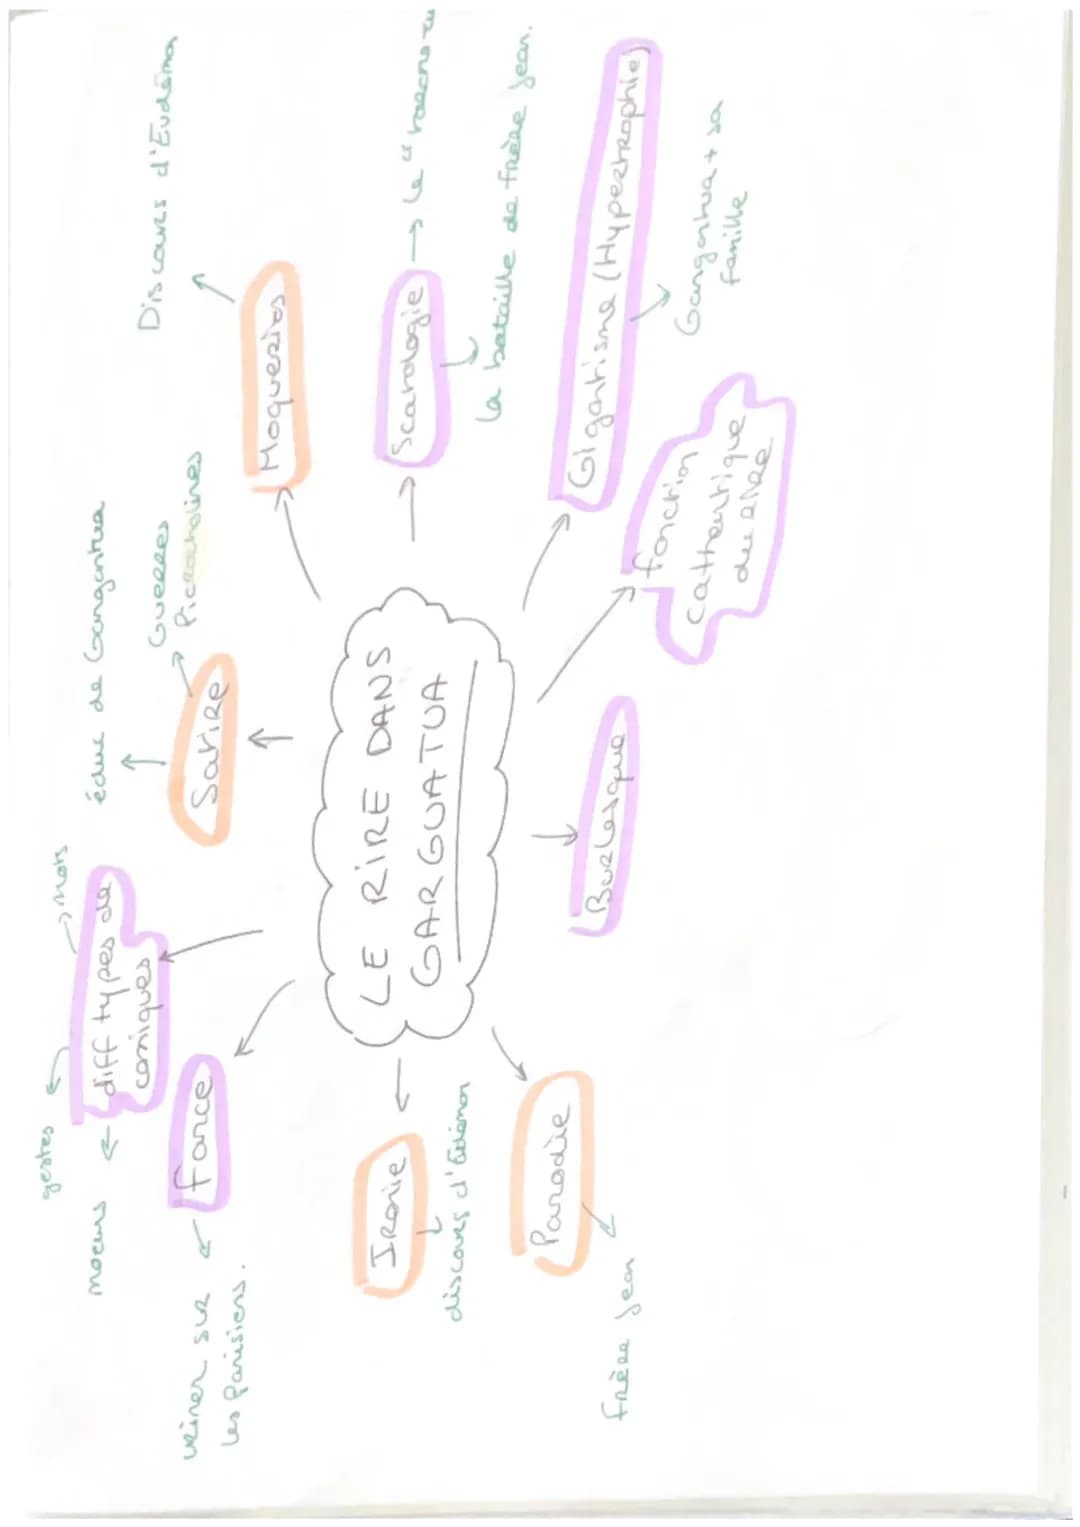 LE RIRE DANS
GARGUATUA
gestes
mots
moeurs
diff types de
comiques
farce
uriner sur
les parisiens.
éduc de Gargantua
Guerres
Picrocholines
Satire
Discours d'Eudémon
Moqueries
Scatologie
le "
La bataille de frère Jean.
Gigantisme (Hypertrophie)
Gargantua + sa
famille
fonction
cathartique
du rire
Burlesque
Ironie
discours d'Eudémon
Parodie
frère Jean